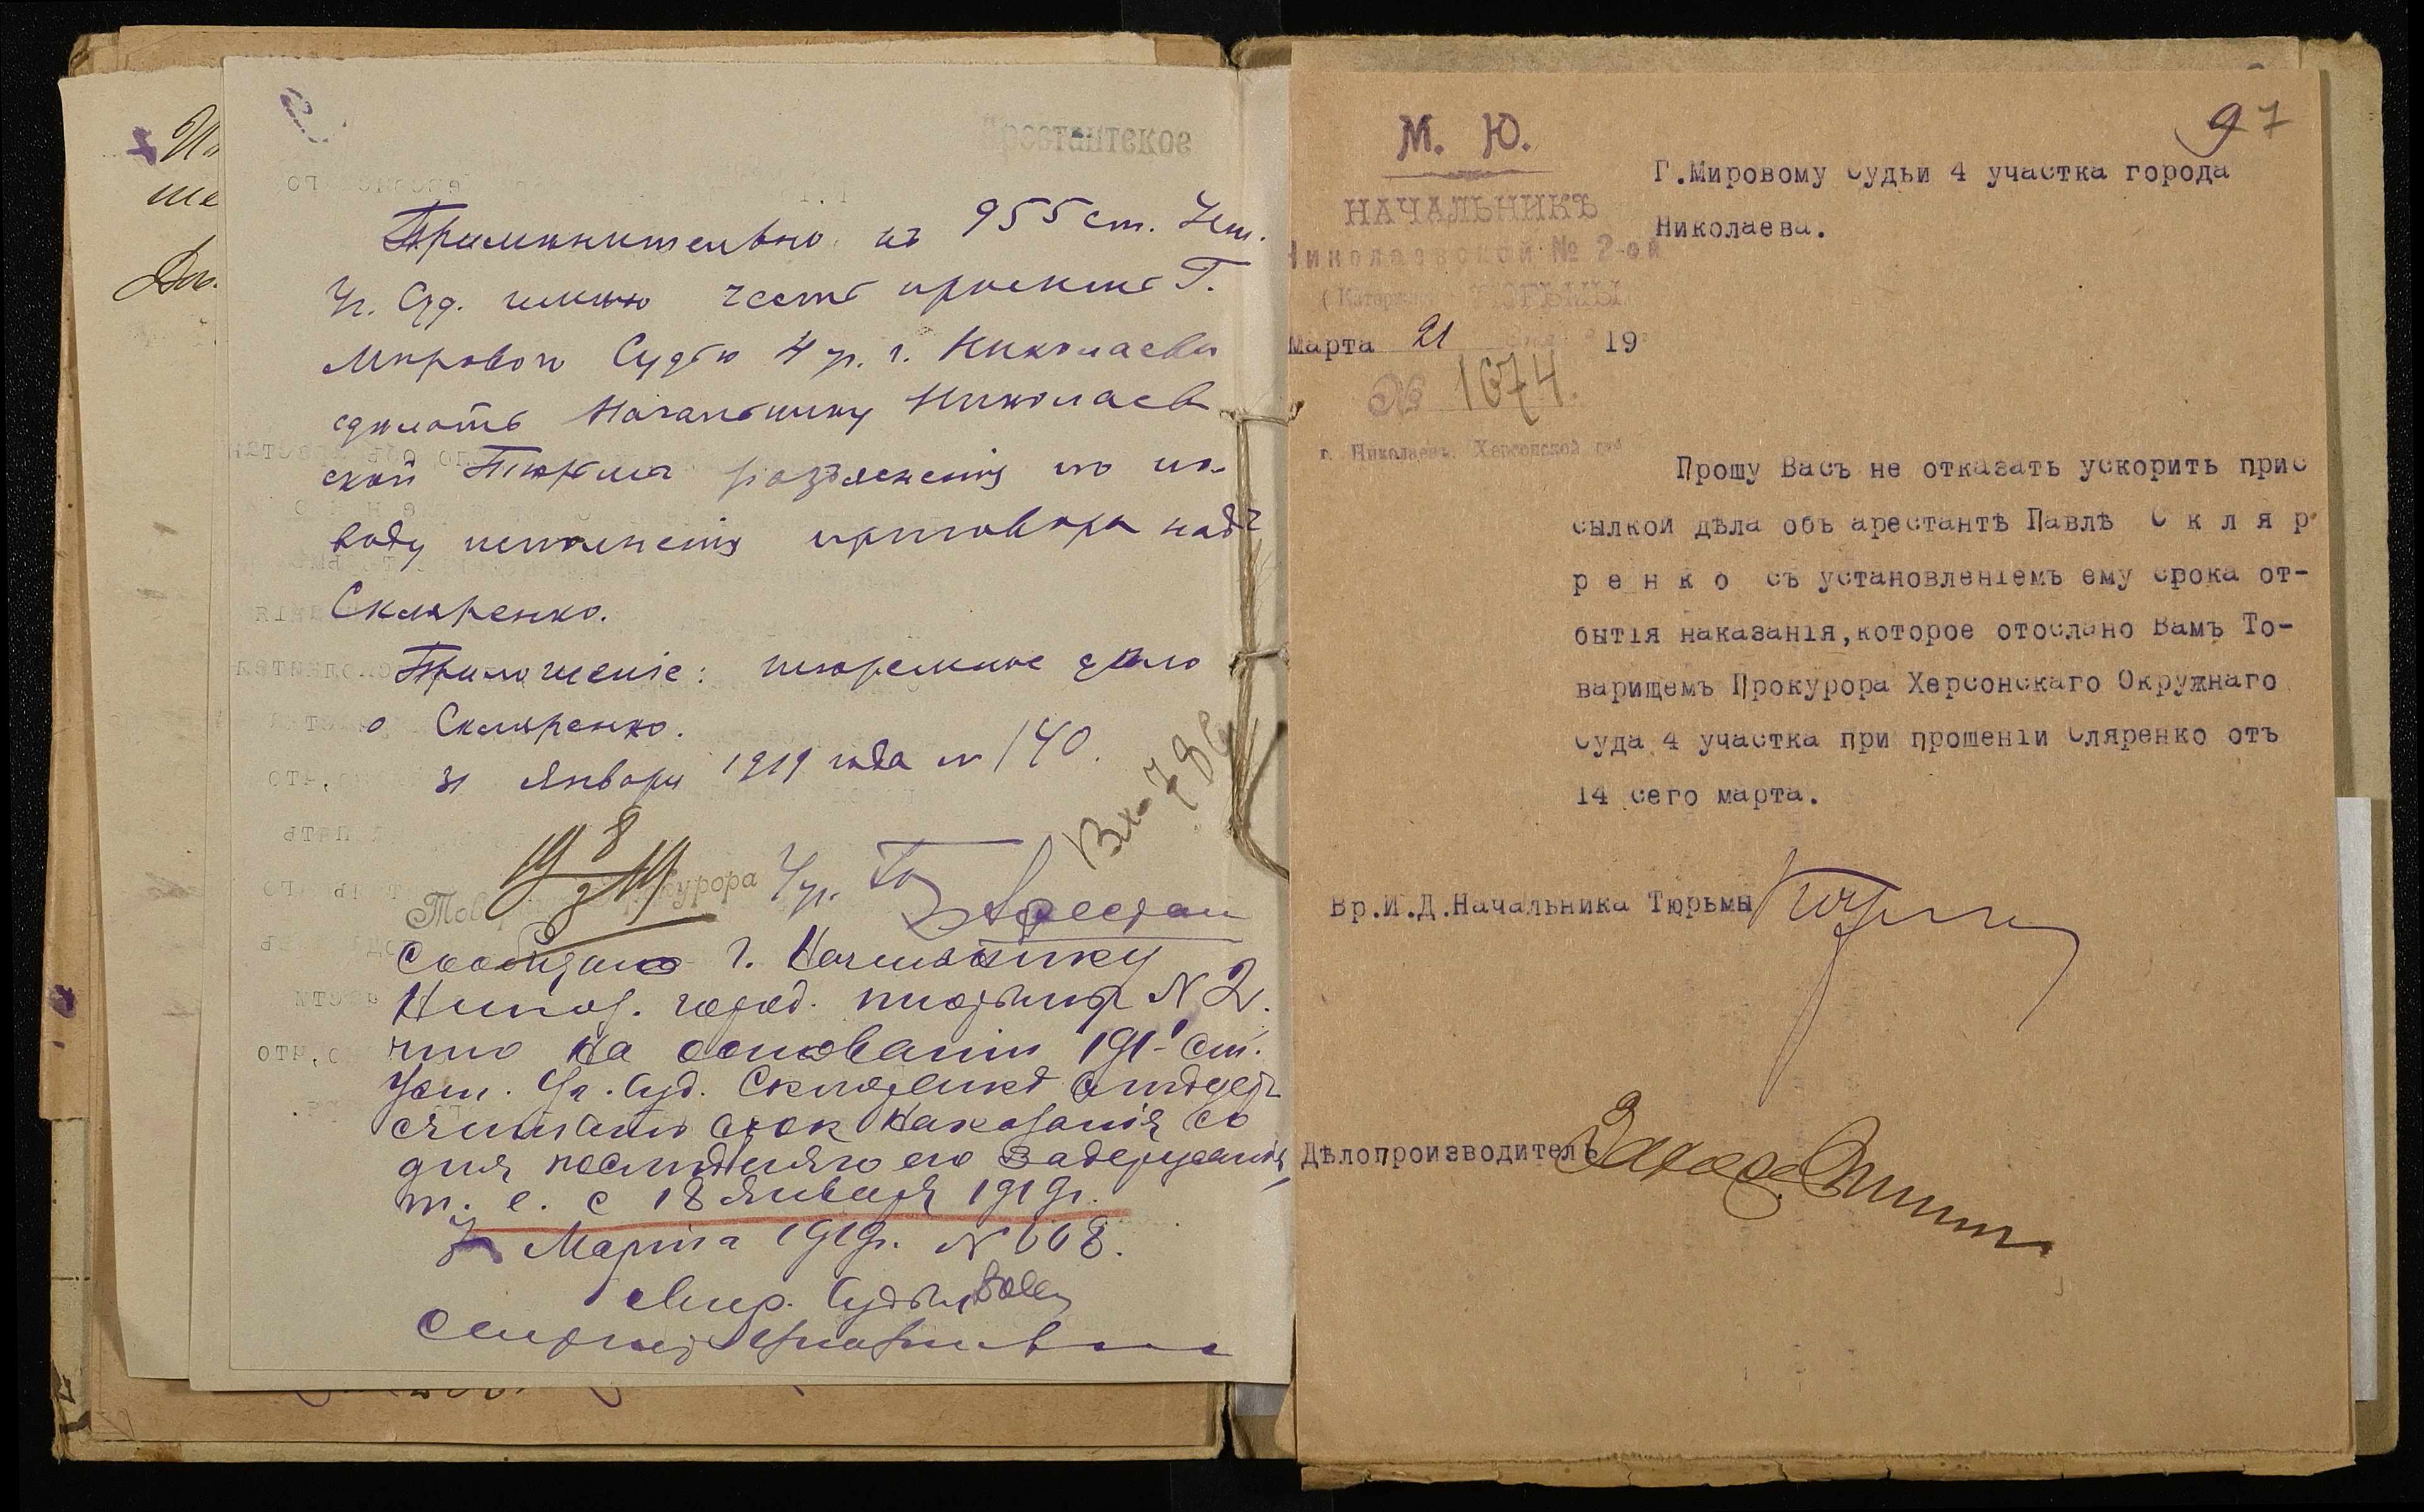 Применительно къ 955 ст. Уст.
Уг. Суд. имею честь просить Г.
Мирового Судью 4 уч. г. Николаева
сделать Начальнику Николаев
ской Тюрьмы разъясненія по по-
воду исполненія приговора надъ
Скляренко.
Приложеніе: тюремное дело
о Скляренко.
31 Января 1919 года № 140.
Товарищ Прокурора 4 уч.
Сообщаю г. Начальнику
Никол. город. тюрьмы № 2.
что на основаніи 191 ст.
Уст. Уг. Суд. Скляренко следует
считать срок наказанія со
дня последняго его задержанія,
т. е. с 18 Января 1919г.
Марта 1919г. № 668.
Мир. Судья
97
М. Ю.
НАЧАЛЬНИКЪ
Николаевской № 2-ой
ТЮРЬМЫ
марта 21 19
№ 1674.
г. Николаевъ, Херсонской губ
Г.Мировому Судьи 4 участка города
Николаева.
Прошу Васъ не отказать ускорить прис
сылкой дѣла объ арестантѣ Павлѣ С к л я р
р е н к о съ установленіемъ ему срока от-
бытія наказанія,которое отослано Вамъ То-
варищемъ Прокурора Херсонскаго Окружнаго
Суда 4 участка при прошеніи Сляренко отъ
14 сего марта.
Вр.И.Д.Начальника Тюрьмы
Дѣлопроизводитель